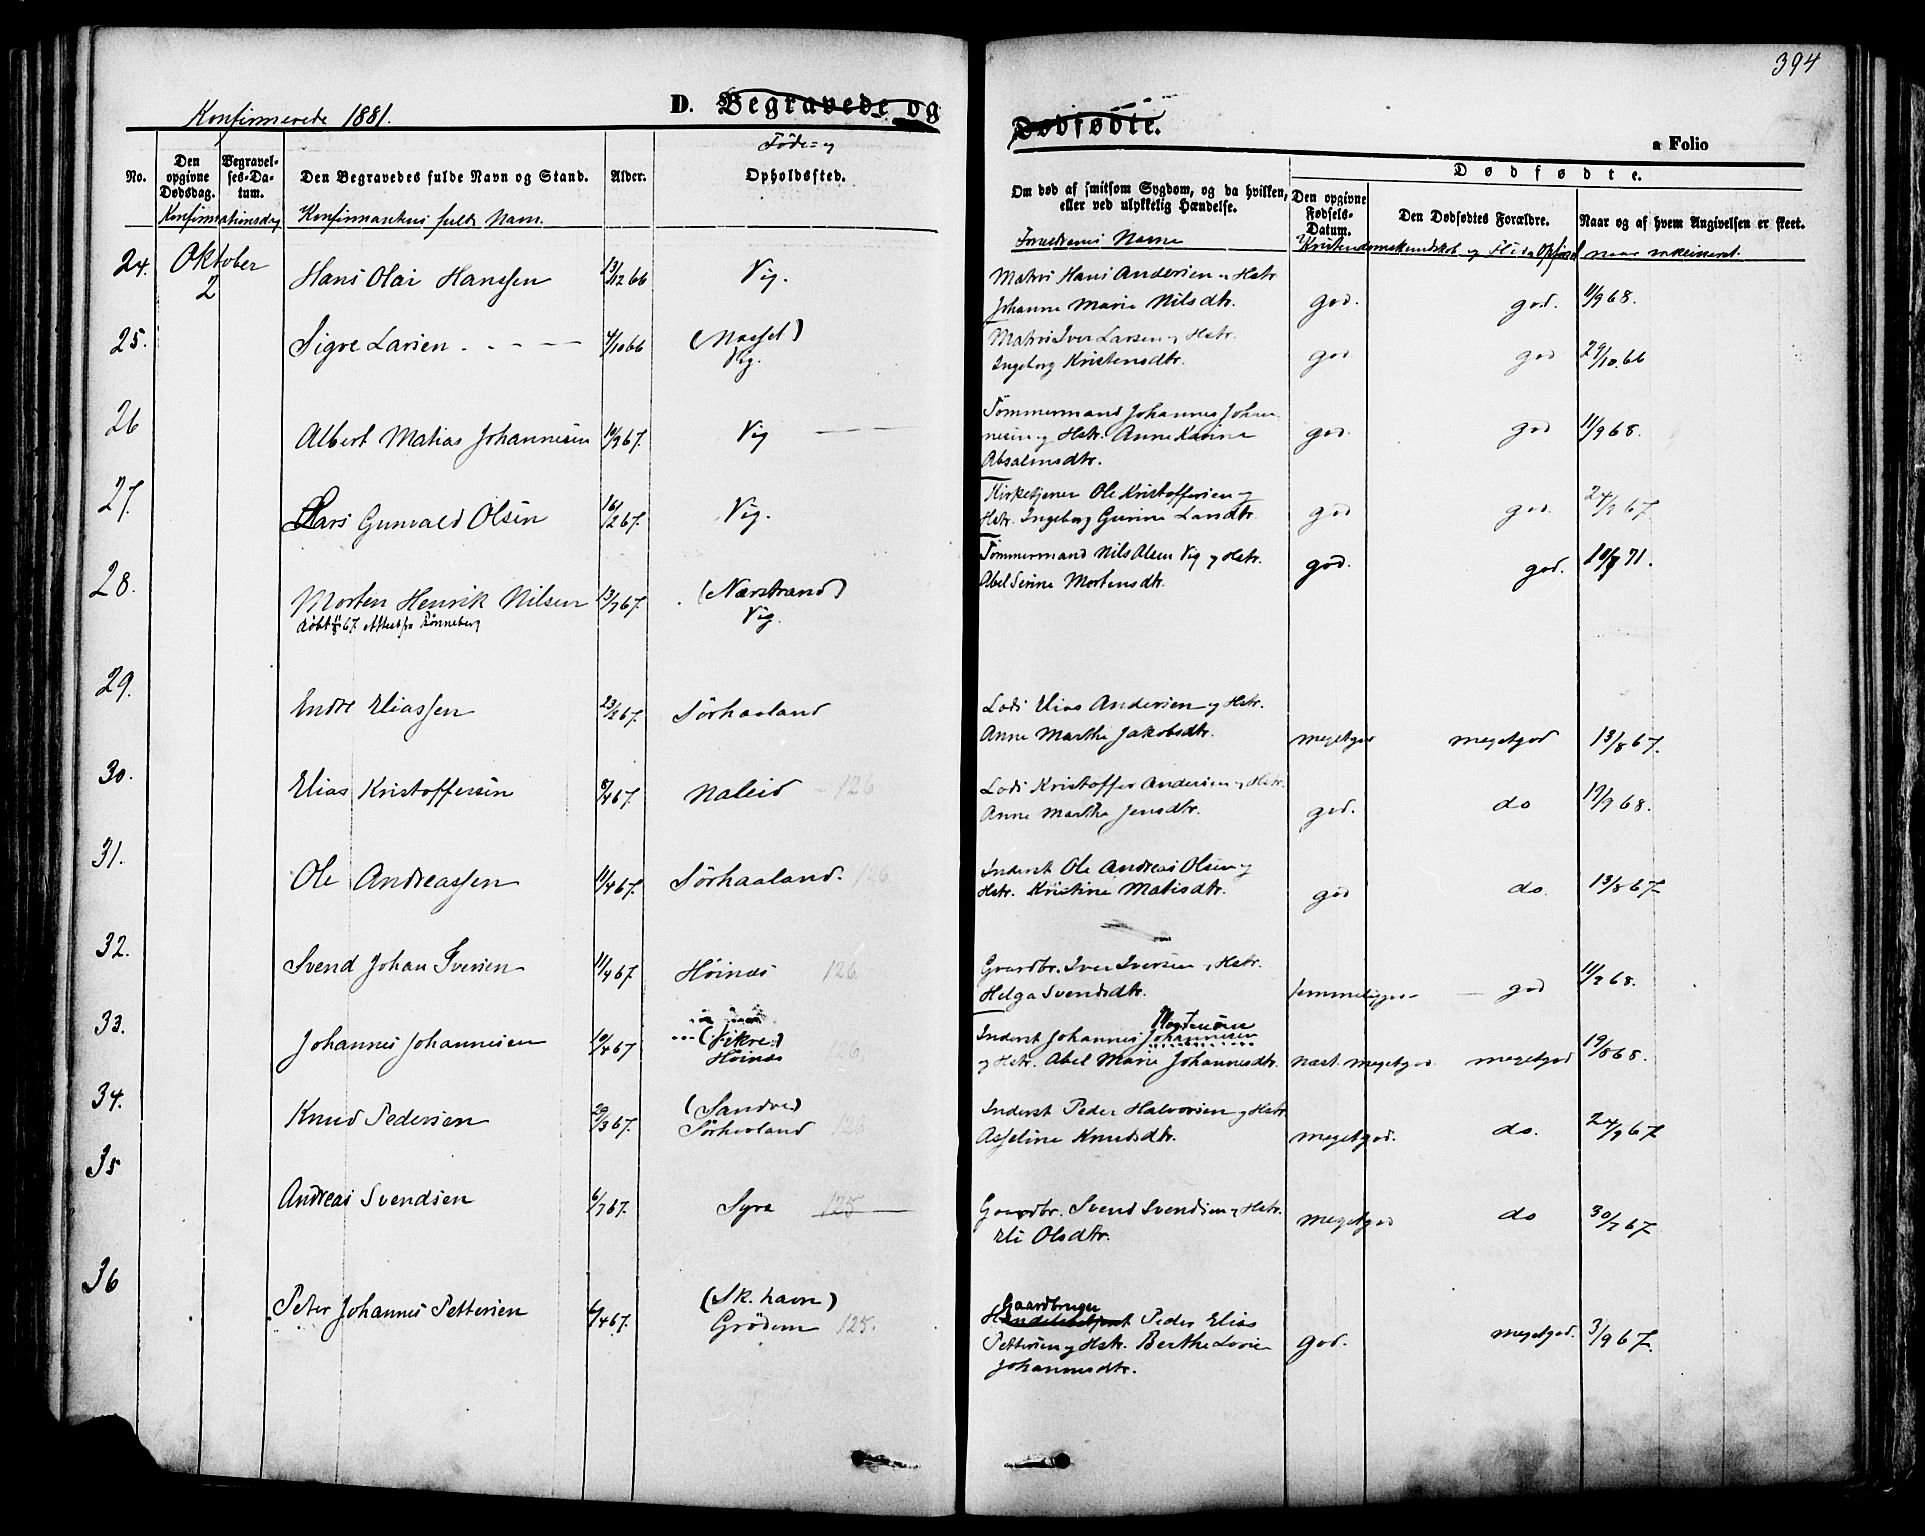 394
Konfirmerede 1881.
D. Begravede og
Dødfødte.
a Folio
No.
Den opgivne Dødsdag.
Begravelses-Datum.
Den Begravedes fulde Navn og Stand.
Alder.
Føde- og
Opholdssted.
Om død af smitsom Sygdom, og da hvilken, eller ved ulykkelig Hændelse.
Dødfødte.
Den opgivne Fødsels-Datum.
Den Dødfødtes Forældre.
Naar og af hvem Angivelsen er skeet.
Konfirmationsdag
Konfirmantens fulde Navn.
Forældrenes Navne
Kristendomskundskab og Flid
naar vakcineret.
24. Oktober 2 Hans Olai Hanssen 13/12 66 Vig. Matros Hans Andersen og Hstr. Johanne Marie Nilsdtr. god. god. 11/9 68.
25. Sigre Larsen 4/10 66 (Nasset) Vig. Matros Iver Larsen og Hstr. Ingeborg Kristensdtr. god god 29/10.66
26 Albert Matias Johannesen 10/9 67. Vig Tømmermand Johannes Johannesen og Hstr. Anne Karine Absalonsdtr. god. god 11/9 68.
27. Lars Gunvald Olsen 16/12 67. Vig. Kirketjener Ole Kristoffersen og Hstr. Ingeborg Gurine Larsdtr. god god. 24/9 67.
28. Morten Henrik Nilsen 13/7 67. (Nærstrand) Vig. Tømmermand Nils Olsen Vig og Hstr. Abel Serine Mortensdtr. god. god. 10/9 71.
døbt 67. Attest fra Rønneberg
29. Endre Eliassen 23/2 67. Sørhaaland Lods Elias Andersen og Hstr. Anne Marthe Jakobsdtr. megetgod megetgod 13/8 67.
30. Elias Kristoffersen 8/4 67. Naleid 126 Lods Kristoffer Andersen og Hstr. Anne Marthe Jensdtr. god. do 19/9 68.
31. Ole Andreassen 11/4 67. Sørhaaland. 126 Inderst Ole Andreas Olsen og Hstr. Kristine Matisdtr. god do. 13/8 67
32. Svend Johan Iversen 11/4 67. Høines 126 Gaardbr. Iver Iversen og Hstr. Helga Svendsdtr. temmeliggod god 11/9 68.
33. Johannes Johannesen 10/4 67 (Vikre) Høines 126 Inderst Johannes Johannesen Mortensen og Hstr. Abel Marie Johannesdtr. næst. megetgod. megetgod 19/8 68.
34. Knud Pedersen 29/3 67. (Sandve) Sørhaaland 126 Inderst Peder Halvorsen og Hstr. Asseline Knudsdtr. megetgod. do. 24/9 67
35 Andreas Svendsen 6/7 67. Syre 125 Gaardbr. Svend Svendsen og Hstr. Eli Olsdtr. megetgod do 30/7 67
36 Peter Johannes Pettersen 6/4 67. (Sk.havn) Grødem 125. Gaardbruger Handelsbetjent Peder Elias Pettersen og Hstr. Berthe Lovise Johannesdtr. god. megetgod. 3/9 67.